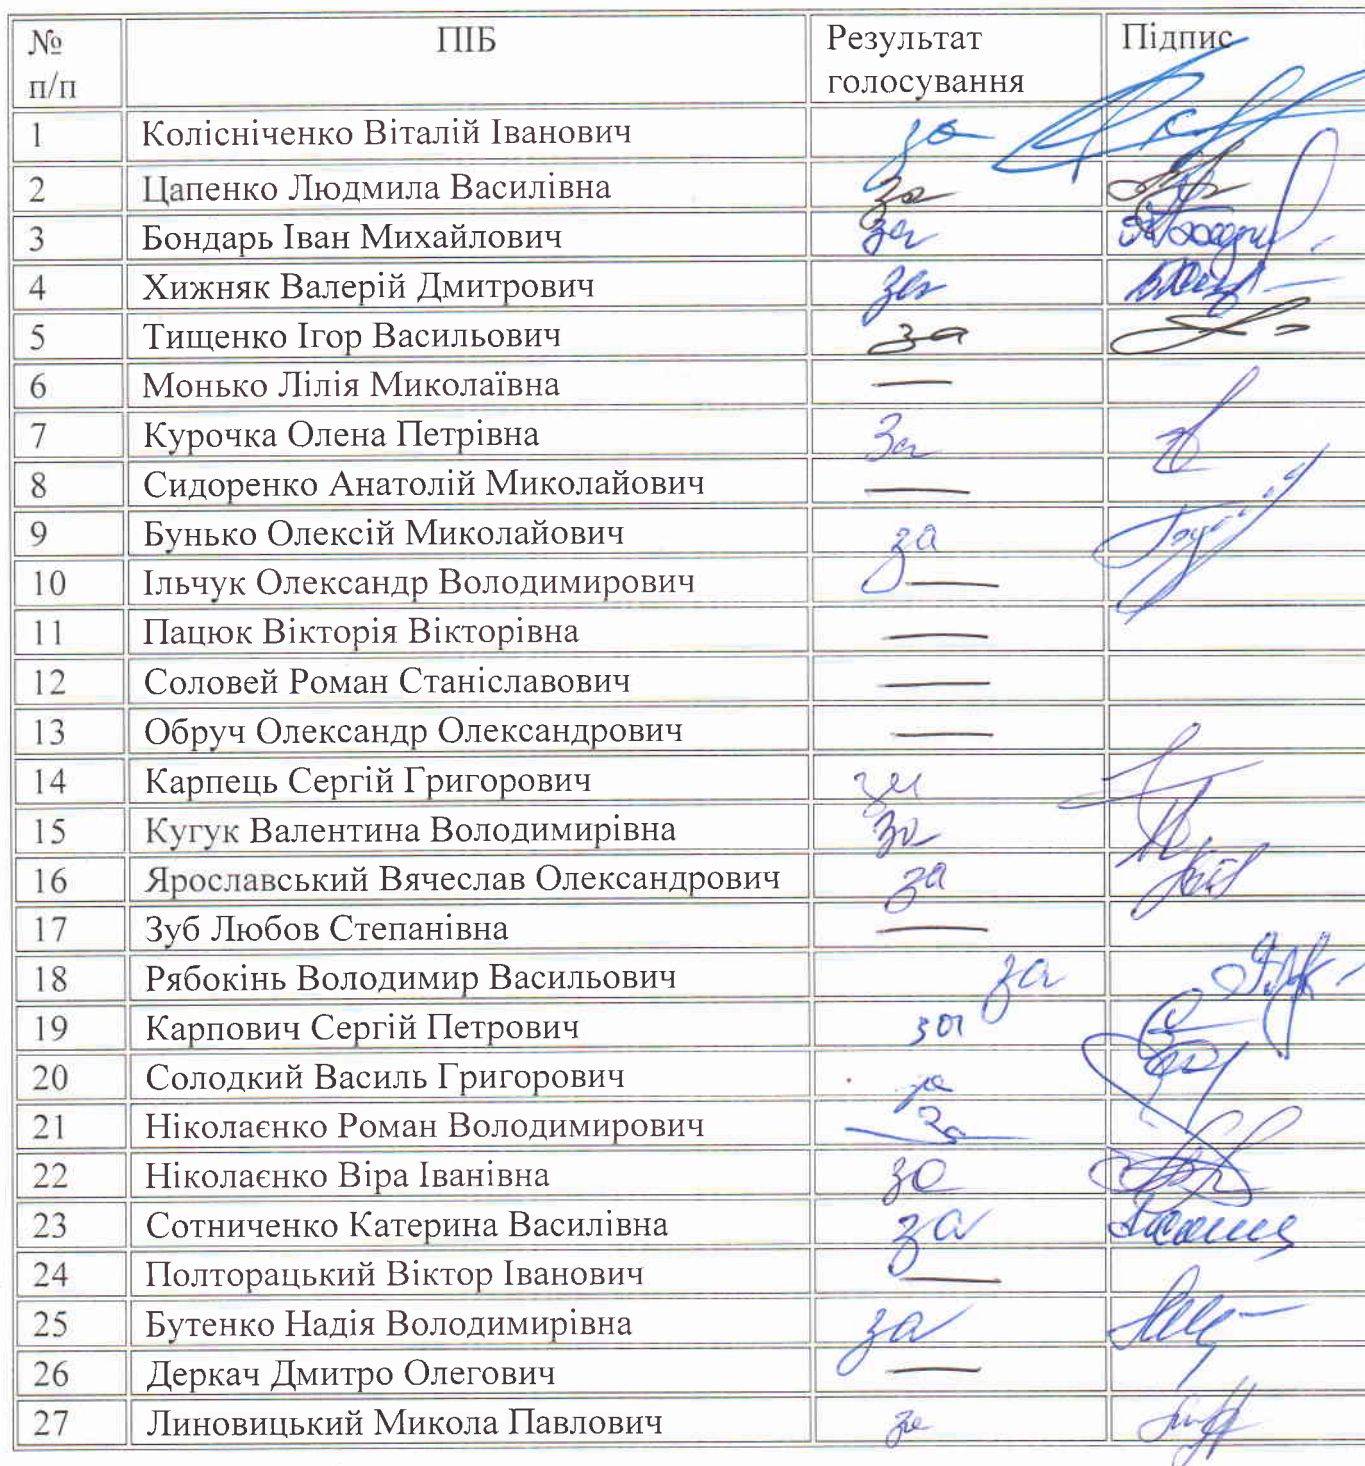 № п/п ПІБ Результат голосування Підпис
1 Колісніченко Віталій Іванович за
2 Цапенко Людмила Василівна за
3 Бондарь Іван Михайлович за
4 Хижняк Валерій Дмитрович за
5 Тищенко Ігор Васильович за
6 Монько Лілія Миколаївна —
7 Курочка Олена Петрівна За
8 Сидоренко Анатолій Миколайович —
9 Бунько Олексій Миколайович за
10 Ільчук Олександр Володимирович —
11 Пацюк Вікторія Вікторівна —
12 Соловей Роман Станіславович —
13 Обруч Олександр Олександрович —
14 Карпець Сергій Григорович за
15 Кугук Валентина Володимирівна за
16 Ярославський Вячеслав Олександрович за
17 Зуб Любов Степанівна —
18 Рябокінь Володимир Васильович за
19 Карпович Сергій Петрович за
20 Солодкий Василь Григорович за
21 Ніколаєнко Роман Володимирович За
22 Ніколаєнко Віра Іванівна за
23 Сотниченко Катерина Василівна за
24 Полторацький Віктор Іванович —
25 Бутенко Надія Володимирівна за
26 Деркач Дмитро Олегович —
27 Линовицький Микола Павлович за